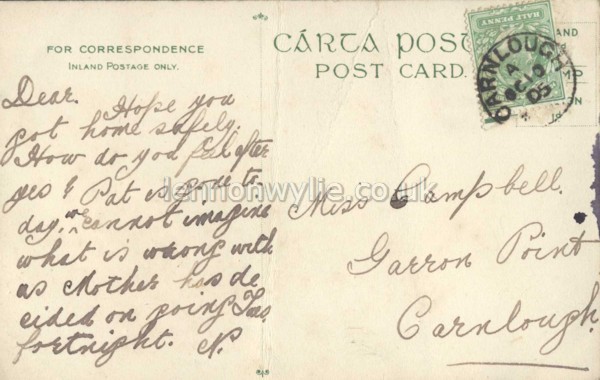 FOR CORRESPONDENCE
INLAND POSTAGE ONLY.
CÁRTA POST
POST CARD.
HALF PENNY
CARNLOUGH
A
OC 10
05
Dear. Hope you
got home safely.
How do you feel after
yes? Pat is gone to-
day, we cannot imagine
what is wrong with
us Mother has de
cided on going Tues
fortnight. N.
Miss Campbell.
Garron Point
Carnlough.
lennonwylie.co.uk